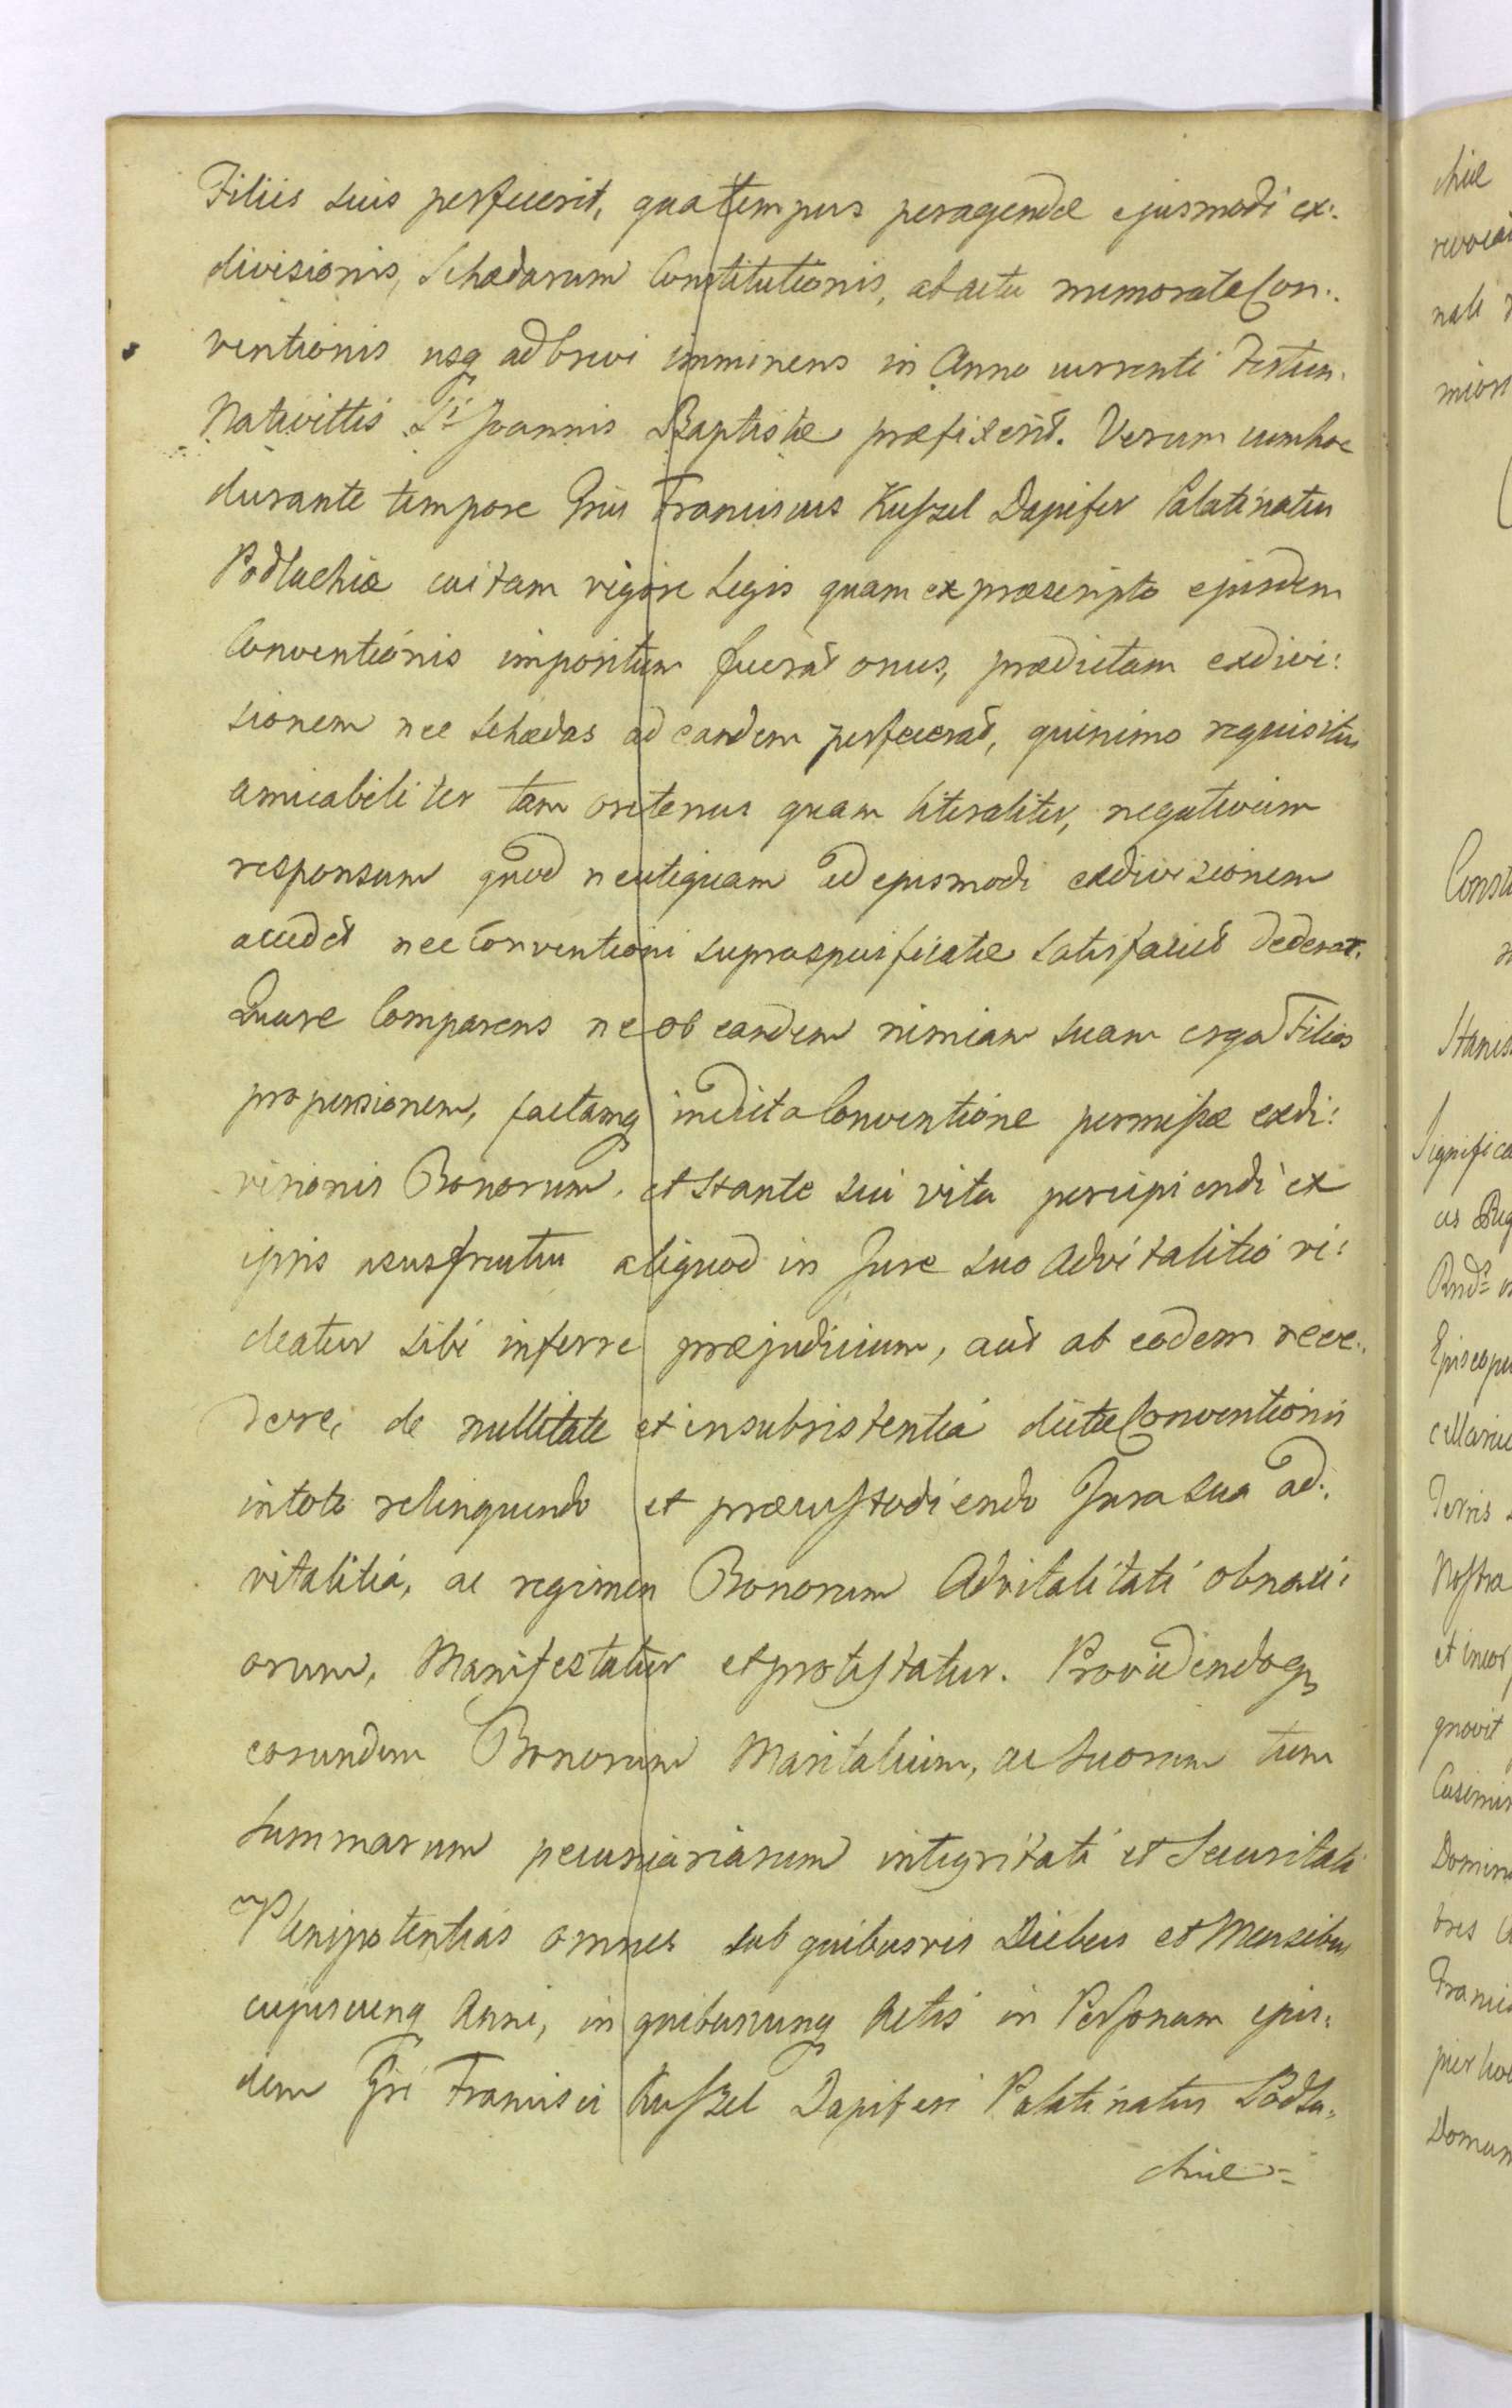 Filiis suis perfecerit, qua tempus peragendæ ejusmodi ex:
divisionis, Schædarum Constitutionis, ab actu memoratæ Con:
ventionis usq ad brevi imminens in Anno currenti Festum
Nativittis Sti Joannis Baptistæ præfixerit. Verum cum hoc
durante tempore Grus Franciscus Kuſzel Dapifer Palatinatus
Podlachiæ cui tam vigore Legis quam ex præscripto ejusdem
Conventionis impositum fuerat onus, prædictam exdivi:
sionem nec Schædas ad eandem perfecerat, quinimo requisitus
amicabiliter tam oretenus quam literaliter, negativum
responsum quod neutiquam ad ejusmodi exdivisionem
accedet nec Conventioni supraspecificatæ satisfaciet dederat.
Quare Comparens ne ob eandem nimiam suam erga Filios
propensionem, factamq in dicta Conventione permissæ exdi:
visionis Bonorum, et stante sui vita percipiendi ex
ipsis ususfructus aliquod in Jure suo Advitalitio vi:
deatur sibi inferre præjudicium, aut ab eodem rece:
dere, de nullitate et insubsistentia dictæ Conventionis
in toto relinquendo et præcuſtodiendo Jura sua ad:
vitalitia, ac regimen Bonorum Advitalitati obnoxi:
orum, Manifestatur et proteſtatur. Providendoq
eorundem Bonorum Maritalium, ac suorum tum
Summarum pecuniariarum integritati et Securitati
Plenipotentias omnes sub quibusvis Diebus et Mensibus
cujuscunq Anni, in quibuscunq Actis in Perſonam ejus:
dem Gri Francisci Kuſzel Dapiferi Palatinatus Podla:
chiæ
chiæ
nali
Const
Stanis
Significa
Episcopu
cellariu
Terris
Noſtra
et incor
gnovit
Casimir
Domin
Franci
Domum